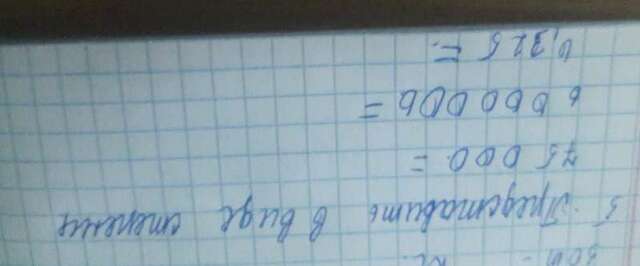 5. Представить в виде степени
75 000 =
6 000 000 =
0,325 =